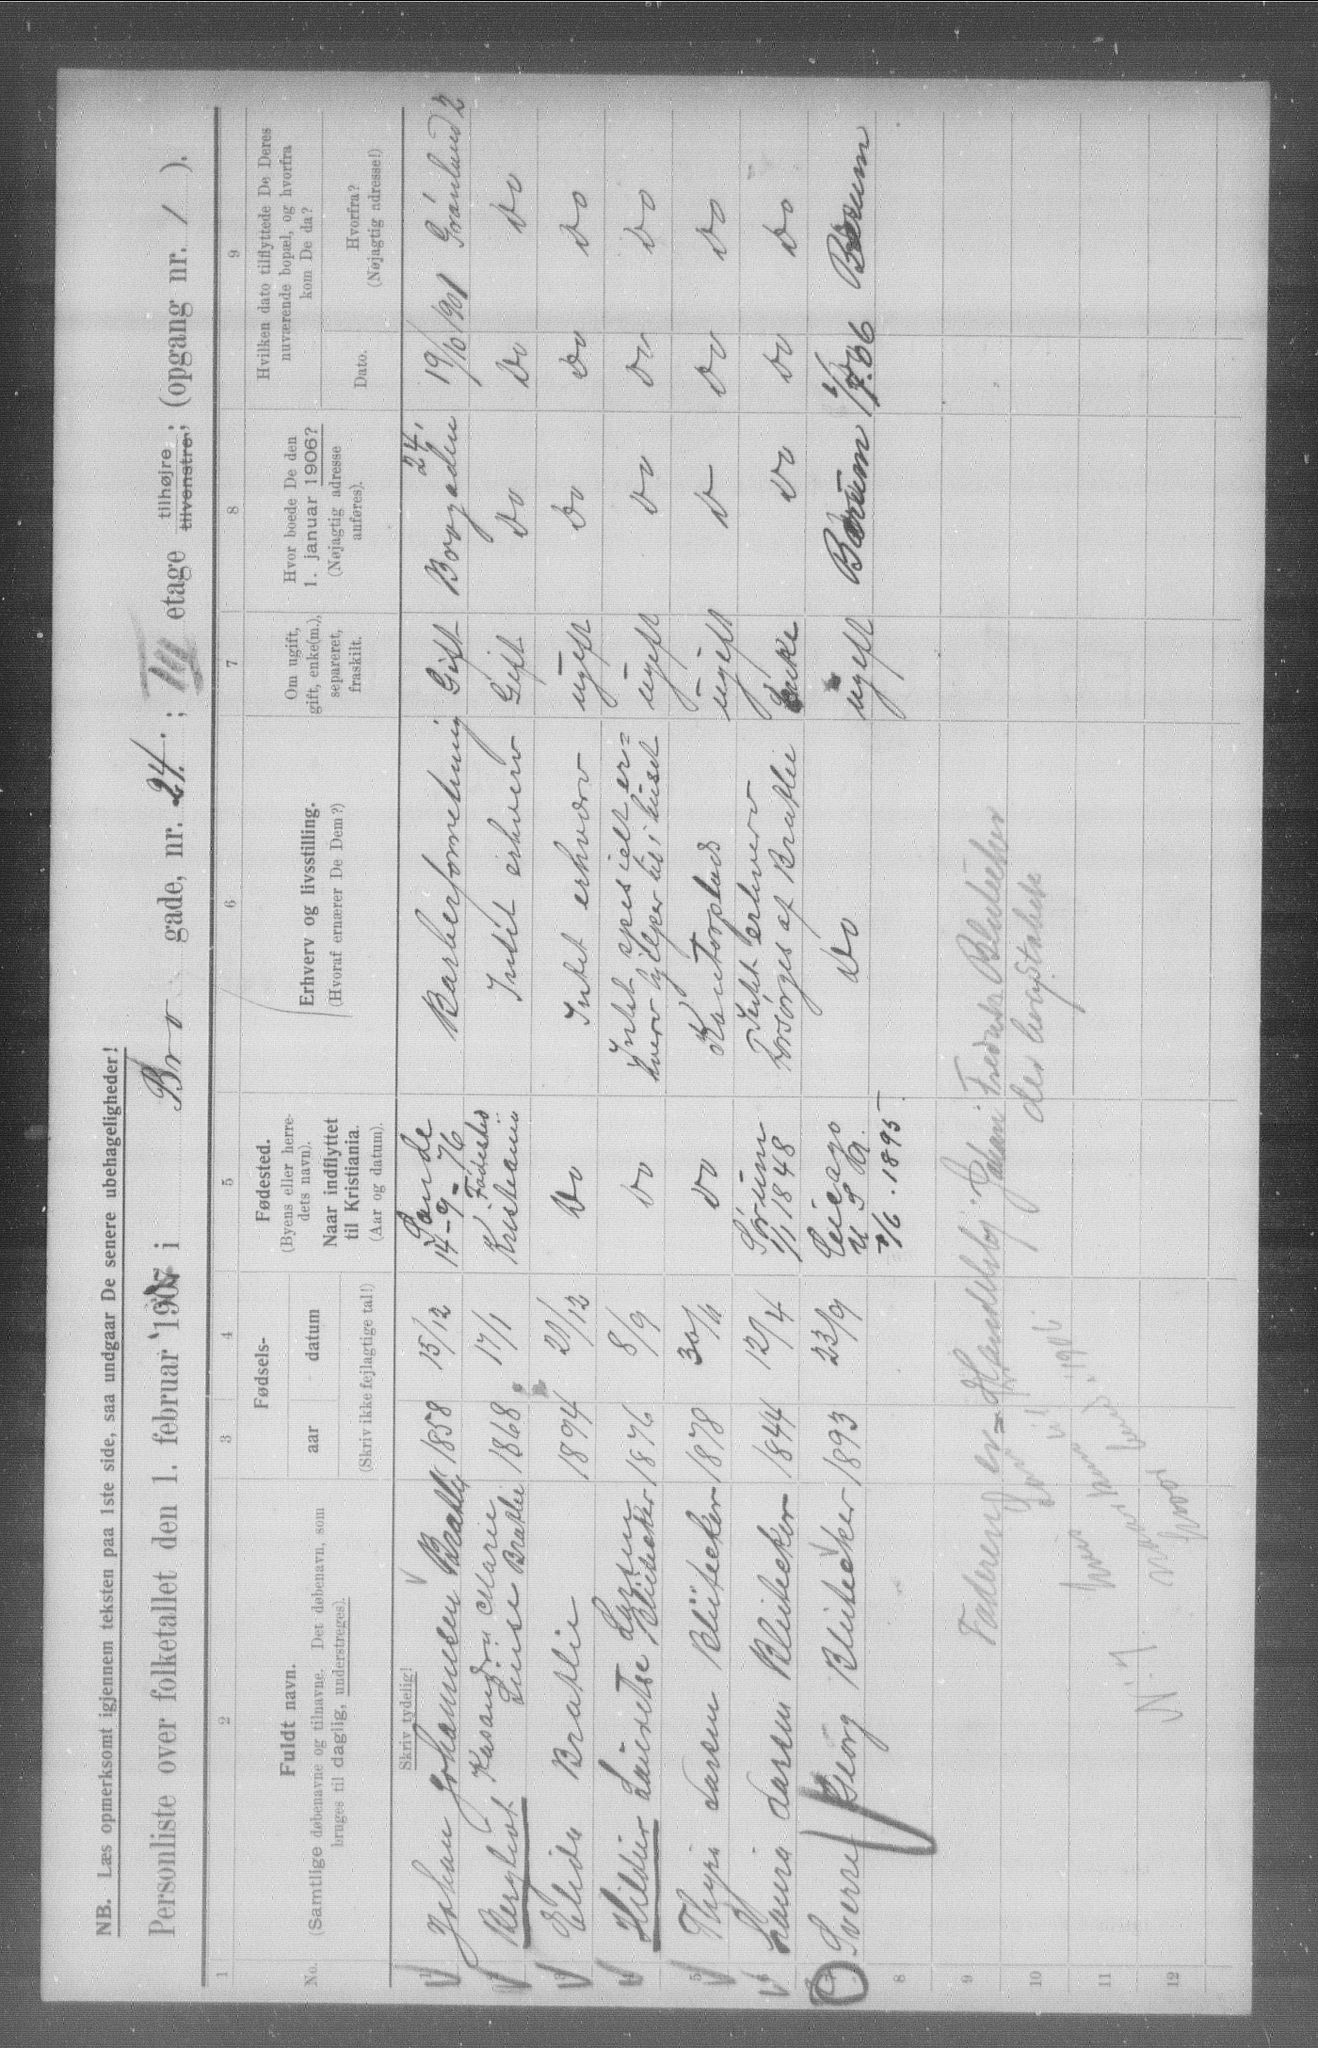 NB. Læs opmerksomt igjennem teksten paa 1ste side, saa undgaar De senere ubehageligheder!
Personliste over folketallet den 1. februar 1907 i Bro gade, nr. 24.; III etage tilhøjre tilvenstre; (opgang nr. 1 ).
1 2 3 4 5 6 7 8 9
No.
Fuldt navn.
(Samtlige døbenavne og tilnavne. Det døbenavn, som
bruges til daglig, understreges).
Fødsels-
aar datum
(Skriv ikke fejlagtige tal!)
Fødested.
(Byens eller herre-
dets navn).
Naar indflyttet
til Kristiania.
(Aar og datum).
Erhverv og livsstilling.
(Hvoraf ernærer De Dem?)
Om ugift,
gift, enke(m.),
separeret,
fraskilt.
Hvor boede De den
1. januar 1906?
(Nøjagtig adresse
anføres).
Hvilken dato tilflyttede De Deres
nuværende bopæl, og hvorfra
kom De da?
Dato.
Hvorfra?
(Nøjagtig adresse!)
Skriv tydelig!
1 Johan Johannesen Bratlie 1858 15/12 Sande 14-9-76 Barberforretning Gift Brogaden 24, 19/10 1901 Grønland 2
2 Bergliot Kasandra Marie Luise Bratlie 1868 17/1 Fødested Kristiania Intet erhverv Gift Do Do Do
3 Elida Bratlie 1894 21/12 Do Intet erhverv ugift Do Do Do
4 Hildur Lauretse Larsen Bleiteker 1876 8/9 Do Intet specielt er=
hverv hjelper til i huset ugift Do Do Do
5 Thyra Larsen Bleiteker 1878 30/11 Do Kontorplads ugift Do Do Do
6 Larsen Bleiteker 1844 12/4 Sørum 1/1 1848 Intet erhverv
forsørges af Bratlie Enke Do Do Do
7 Sverre Georg Bleiteker 1893 23/9 U S A. 1/6. 1895 Do ugift Bærum 06 Bærum
8
9 Faderen er Handelsbetj. Johan Fredrik Bleiteker
10
11
12